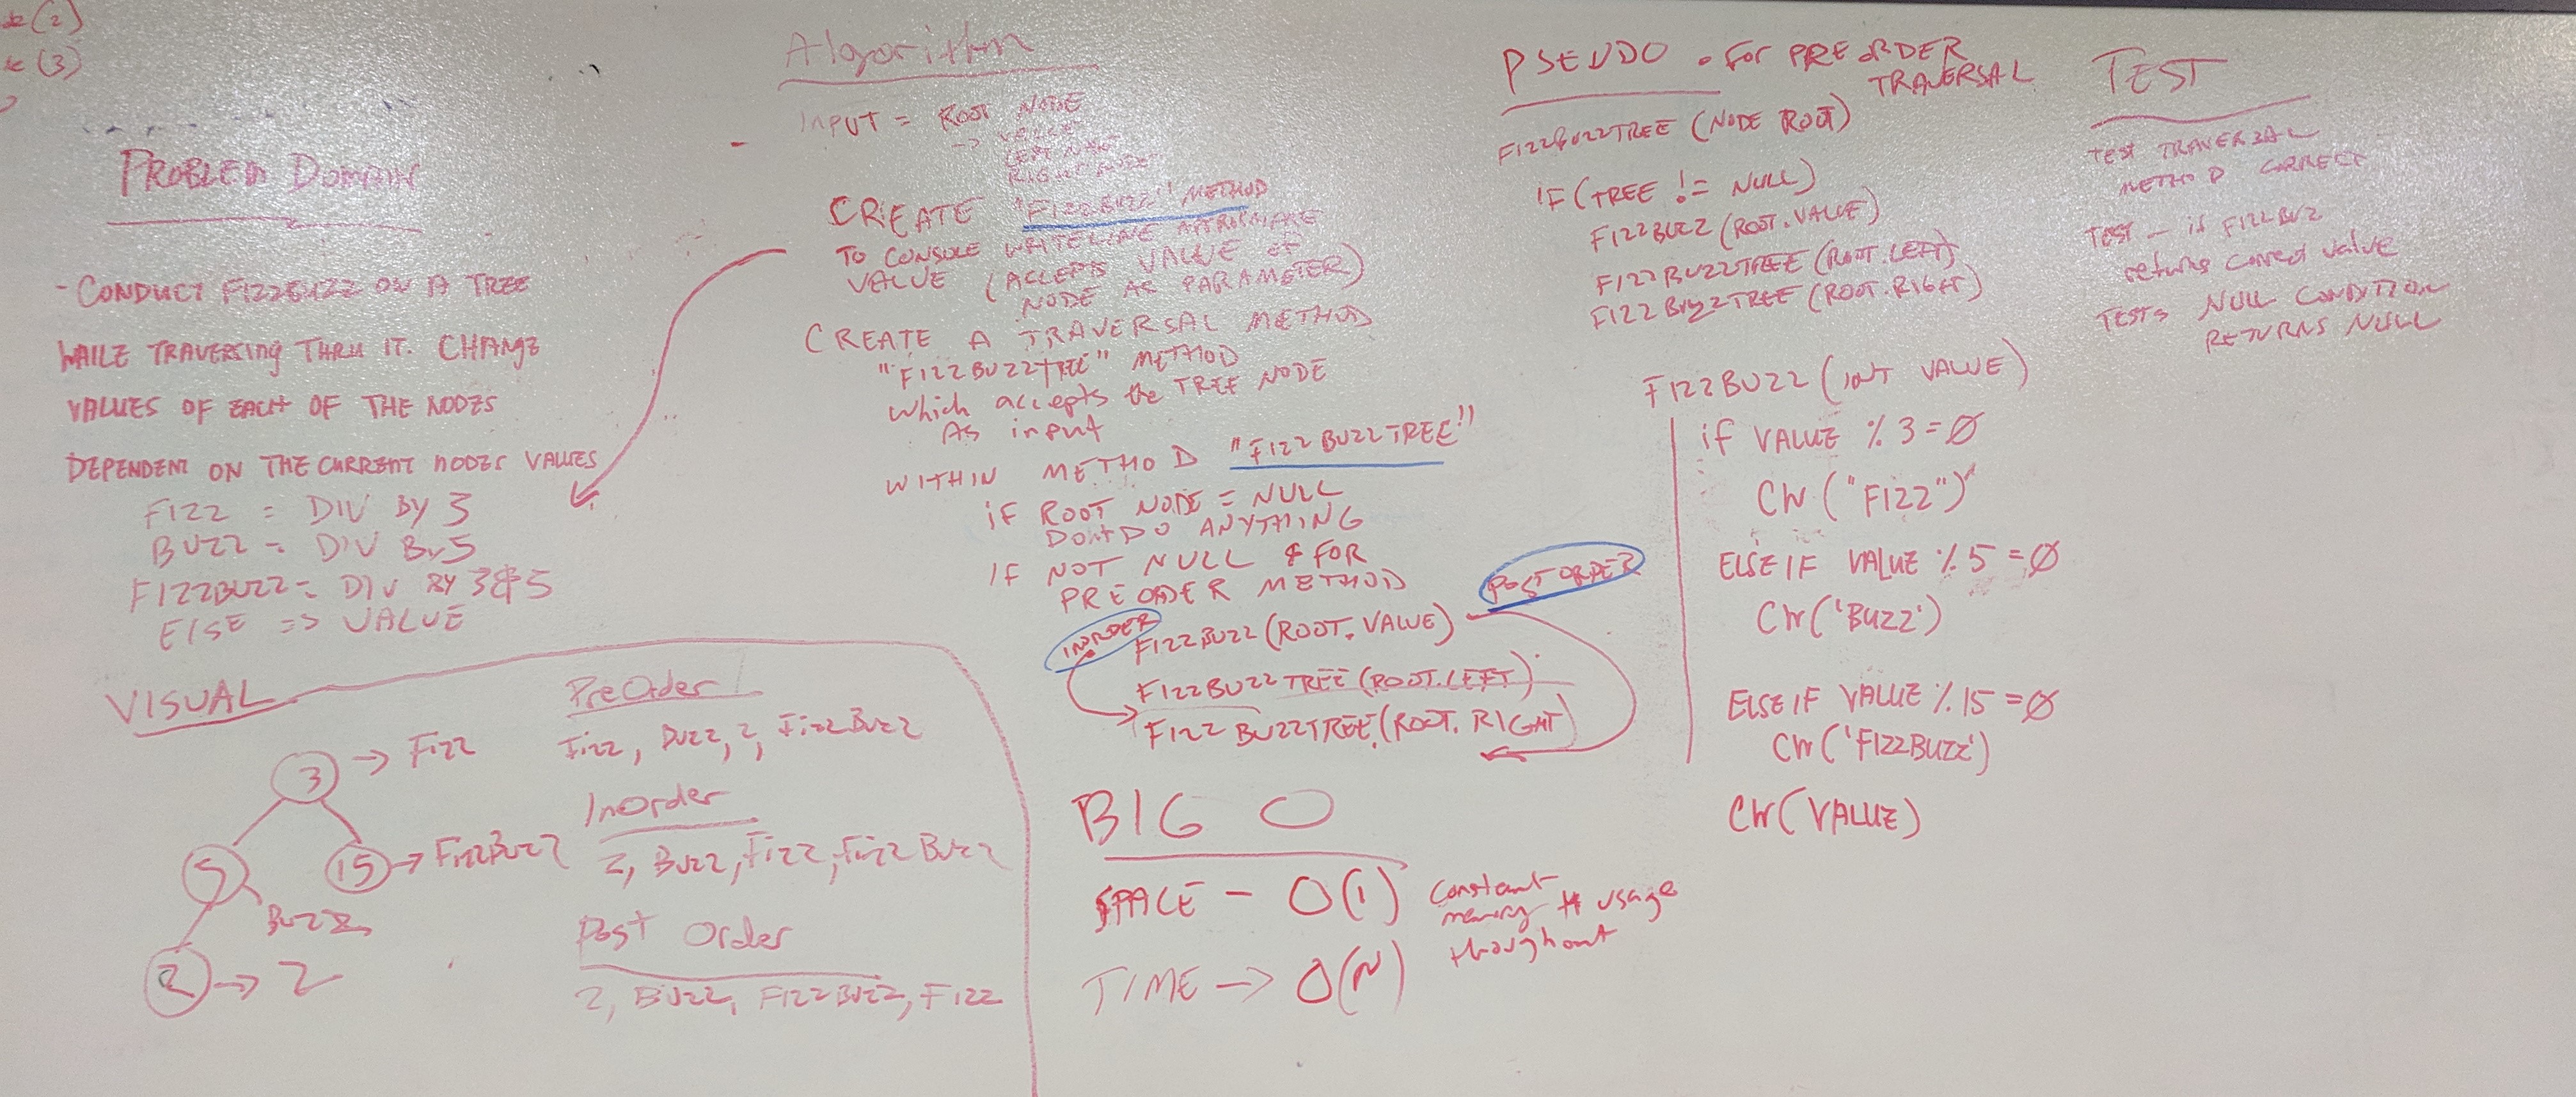 (2)
(3)
PROBLEM DOMAIN
- CONDUCT FIZZBUZZ ON A TREE
WHILE TRAVERSING THRU IT. CHANGE
VALUES OF EACH OF THE NODES
DEPENDENT ON THE CURRENT NODES VALUES
FIZZ = DIV BY 3
BUZZ = DIV BY 5
FIZZBUZZ = DIV BY 3 & 5
ELSE => VALUE
VISUAL
3 -> Fizz
5
Buzz
15 -> FizzBuzz
2 -> 2
PreOrder
Fizz, Buzz, 2, FizzBuzz
InOrder
2, Buzz, Fizz, FizzBuzz
Post Order
2, BUZZ, FIZZBUZZ, FIZZ
Algorithm
INPUT = ROOT NODE
-> VALUE
LEFT NODE
RIGHT NODE
CREATE "FIZZBUZZ" METHOD
TO CONSOLE WRITELINE APPROPRIATE
VALUE (ACCEPTS VALUE OF
NODE AS PARAMETER)
CREATE A TRAVERSAL METHOD
"FIZZBUZZTREE" METHOD
which accepts the TREE NODE
As input
WITHIN METHOD "FIZZBUZZTREE"
IF ROOT NODE = NULL
DONT DO ANYTHING
IF NOT NULL & FOR
PREORDER METHOD
POSTORDER
INORDER
FIZZBUZZ (ROOT.VALUE)
FIZZBUZZTREE (ROOT.LEFT)
FIZZBUZZTREE (ROOT.RIGHT)
BIG O
SPACE - O(1) constant
memory usage
throughout
TIME -> O(N)
PSEUDO . FOR PREORDER
TRAVERSAL
FIZZBUZZTREE (NODE ROOT)
IF (TREE != NULL)
FIZZBUZZ (ROOT.VALUE)
FIZZBUZZTREE (ROOT.LEFT)
FIZZBUZZTREE (ROOT.RIGHT)
FIZZBUZZ (INT VALUE)
if VALUE % 3 = 0
CW ("FIZZ")
ELSE IF VALUE % 5 = 0
CW ('BUZZ')
ELSE IF VALUE % 15 = 0
CW ('FIZZBUZZ')
CW (VALUE)
TEST
Test TRAVERSAL
METHOD CORRECT
TEST - if FIZZBUZ
returns correct value
TESTS NULL CONDITION
RETURNS NULL